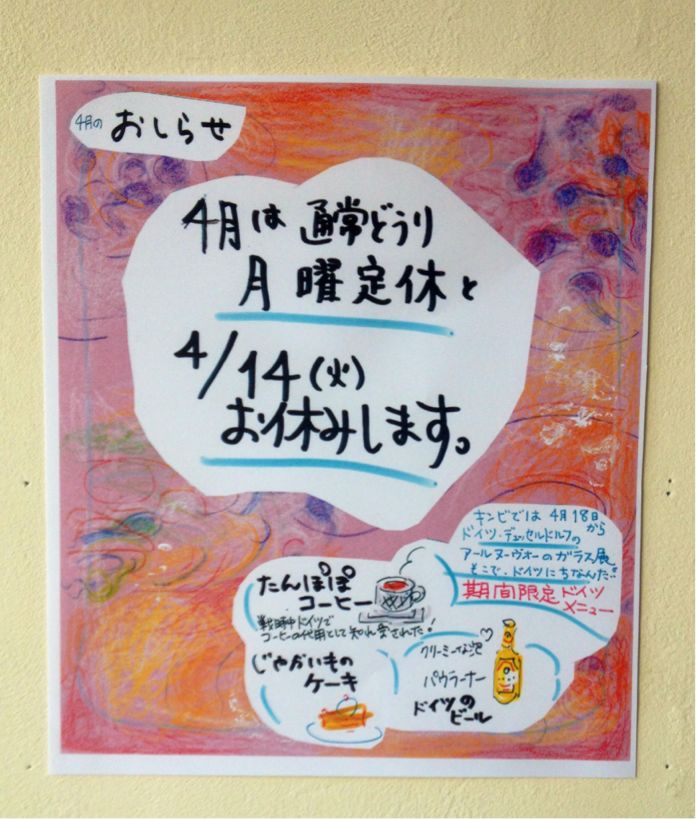 4月の おしらせ
4月は 通常どうり
月曜定休と
4/14(火)
お休みします。
キンビでは 4月18日から
ドイツ・デュッセルドルフの
アールヌーヴォーのガラス展
そこで、ドイツにちなんだ!!
期間限定ドイツ
メニュー
たんぽぽ
コーヒー
戦時中ドイツで
コーヒーの代用として知れ愛された!
じゃがいもの
ケーキ
クリーミーな泡
パウラーナー
ドイツの
ビール